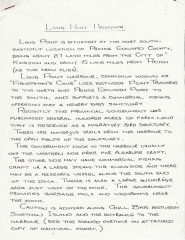 LONG POINT HARBOUR.
LONG POINT IS SITUATED AT THE MOST SOUTH-
EASTERLY LOCATION OF PRINCE EDWARD COUNTY,
BEING ABOUT 27 LAND MILES FROM THE CITY OF
KINGSTON AND ABOUT 15 LAND MILES FROM PICTON
(AS THE CROW FLIES).
LONG POINT HARBOUR, COMMONLY KNOWN AS
'FISHERMAN'S COVE' LIES BETWEEN POINT TRAVERSE
TO THE NORTH AND PRINCE EDWARD POINT TO
THE SOUTH, AND SUPPORTS A COMMERCIAL FISHING
OPERATION AND A NEARBY BIRD SANCTUARY.
RECENTLY THE PROVINCIAL GOVERNMENT HAS
PURCHASED SEVERAL HUNDRED ACRES OF FARM LAND
THAT IS RESERVED AS A MIGRATORY BIRD SANCTUARY.
THERE ARE NUMEROUS TRAILS FROM THE HARBOUR TO
THE OPEN FIELDS OF THE SANCTUARY.
THE GOVERNMENT DOCK IN THE HARBOUR USUALLY
HAS THE WESTERN SIDE FREE FOR PLEASURE CRAFT.
THE OTHER SIDE MAY HAVE COMMERCIAL FISHING
CRAFT OR A LARGE VESSEL TIED ALONGSIDE AND THERE
MAY BE A RESERVE VESSEL ALONG THE SOUTH END
OF THE DOCK. THERE IS ALSO A LARGE ANCHORAGE
AREA JUST WEST OF THE DOCK. THE GOVERNMENT
PROVIDES GARBAGE PAILS AND WASHROOMS NEAR
THE DOCK.
CAUTION IS ADVISED ALONG GULL BAR BETWEEN
SWETMAN ISLAND AND THE ENTRANCE TO THE
HARBOUR. (SEE THE MARKED SECTION ON ATTACHED
COPY OF NAUTICAL CHART.)